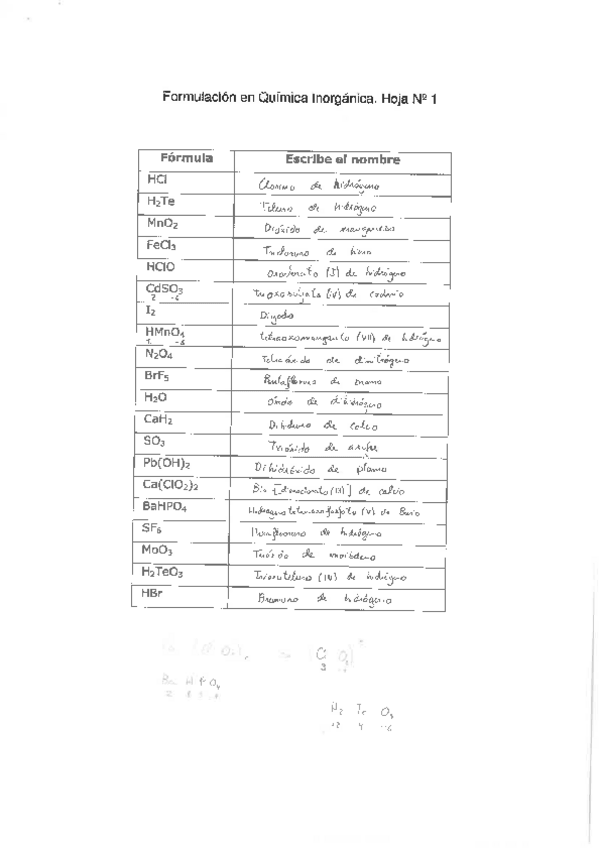 Formulación en Química Inorgánica. Hoja Nº 1
Fórmula Escribe el nombre
HCl Cloruro de hidrógeno
H₂Te Teluro de hidrógeno
MnO₂ Dióxido de manganeso
FeCl₃ Tricloruro de hierro
HClO oxoclorato (I) de hidrógeno
CdSO₃ trioxosulfato (IV) de cadmio
2 -6
I₂ Diyodo
HMnO₄ tetraoxomanganato (VII) de hidrógeno
1 -8
N₂O₄ Tetraóxido de dinitrógeno
BrF₅ Pentafloruro de bromo
H₂O Óxido de dihidrógeno
CaH₂ Dihidruro de calcio
SO₃ Trióxido de azufre
Pb(OH)₂ Dihidróxido de plomo
Ca(ClO₂)₂ Bis [dioxoclorato (III)] de calcio
BaHPO₄ Hidrogenotetraoxofosfato (V) de Bario
SF₆ de hidrógeno
MoO₃ Trióxido de molibdeno
H₂TeO₃ (IV) de hidrógeno
HBr Bromuro de hidrógeno
Ba H P O₄
H₂ Te O₃
+2 4 -6